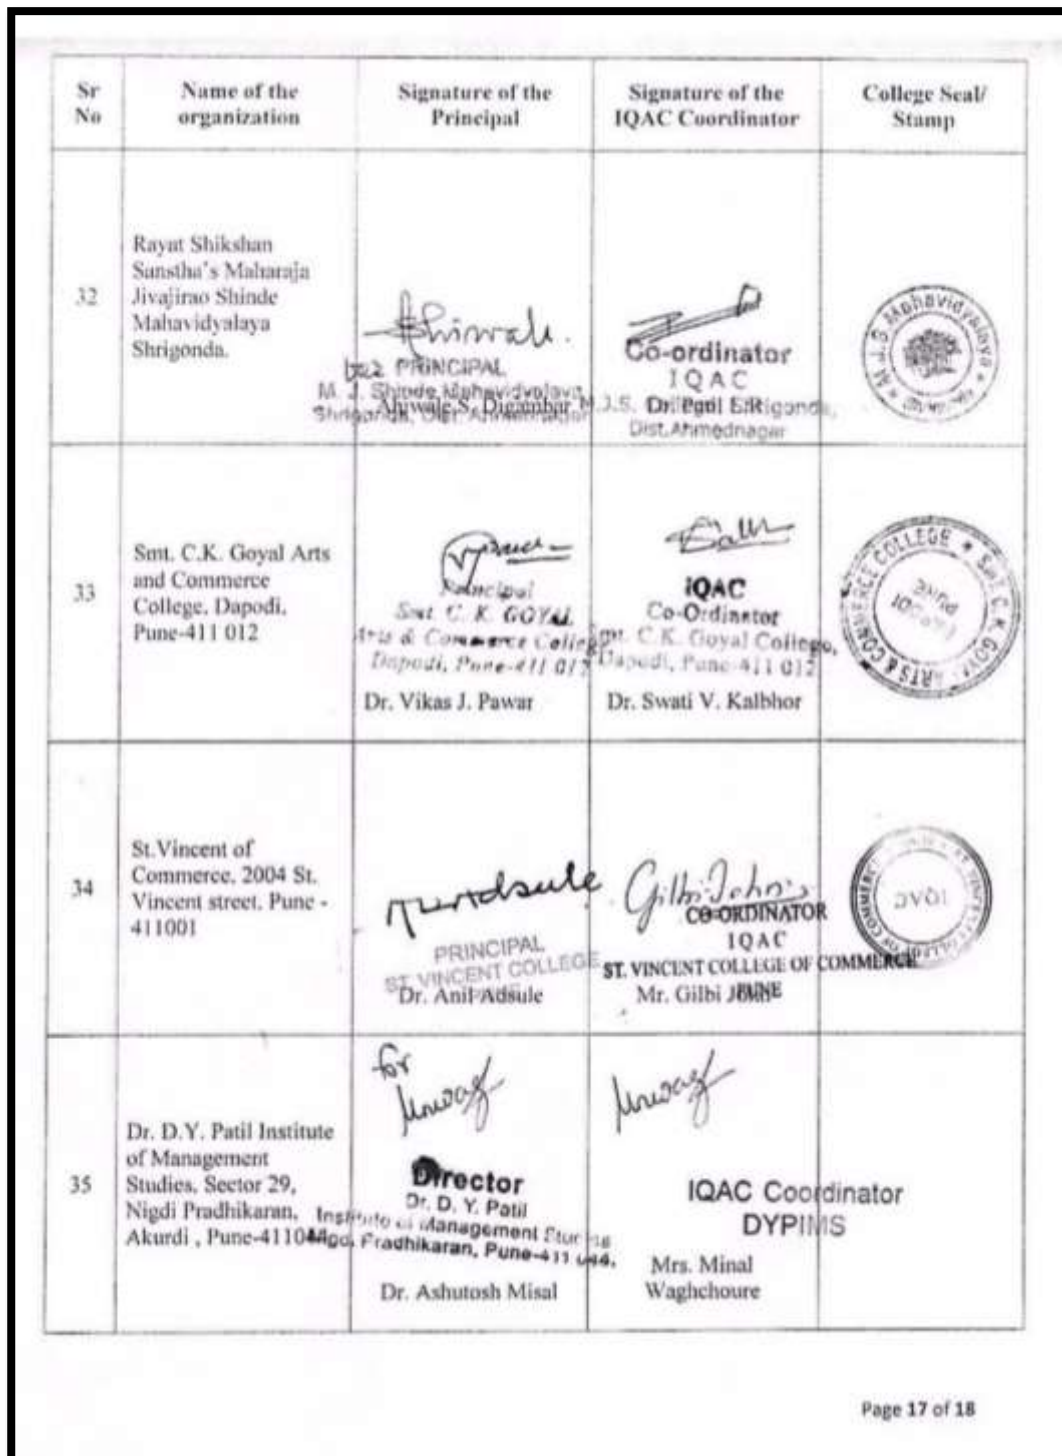 Sr No
Name of the organization
Signature of the Principal
Signature of the IQAC Coordinator
College Seal/ Stamp
32
Rayat Shikshan
Sanstha's Maharaja
Jivajirao Shinde
Mahavidyalaya
Shrigonda.
PRINCIPAL
M. J. Shinde Mahavidyalaya
Shrigonda, Dist. Ahmednagar
Ahiwale S. Digambar
Co-ordinator
IQAC
M.J.S.
Dist.Ahmednagar
M.J.S. Mahavidyalaya
33
Smt. C.K. Goyal Arts
and Commerce
College, Dapodi,
Pune-411 012
Principal
Smt C. K. GOYAL
Arts & Commerce College
Dapodi, Pune-411 012
Dr. Vikas J. Pawar
IQAC
Co-Ordinator
Smt. C.K. Goyal College,
Dapodi, Pune-411 012
Dr. Swati V. Kalbhor
ARTS & COMMERCE COLLEGE
PUNE
34
St.Vincent of
Commerce, 2004 St.
Vincent street, Pune -
411001
PRINCIPAL
ST. VINCENT COLLEGE
Dr. Anil Adsule
Gilbi Johns
CO-ORDINATOR
IQAC
ST. VINCENT COLLEGE OF COMMERCE
PUNE
Mr. Gilbi
35
Dr. D.Y. Patil Institute
of Management
Studies, Sector 29,
Nigdi Pradhikaran,
Akurdi , Pune-411044
for
Director
Dr. D. Y. Patil
Institute of Management Studies
Nigdi, Pradhikaran, Pune-411 044.
Dr. Ashutosh Misal
IQAC Coordinator
DYPIMS
Mrs. Minal
Waghchoure
Page 17 of 18